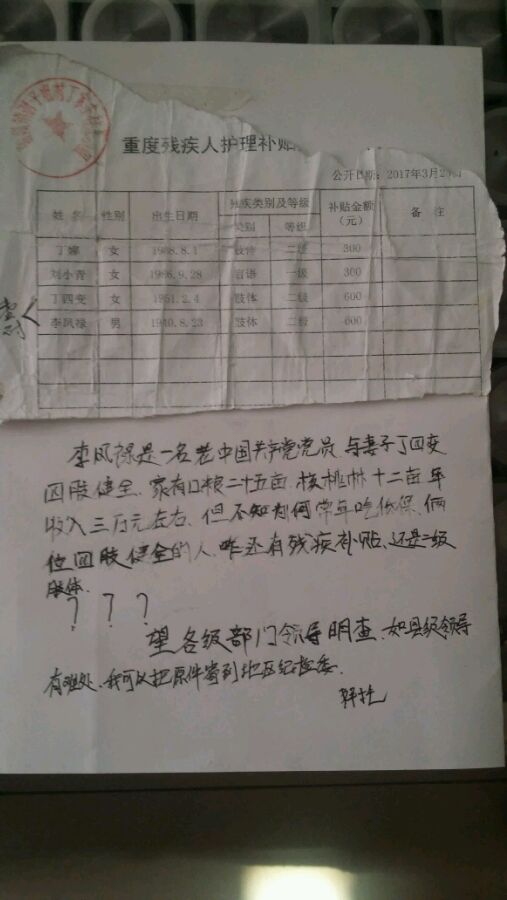 重度残疾人护理补贴
公开日期：2017年3月2
姓名 性别 出生日期 残疾类别及等级 补贴金额（元） 备注
类别 等级
丁娜 女 1968.8.1 肢体 二级 300
刘小青 女 1966.9.28 言语 一级 300
丁四变 女 1951.2.4 肢体 二级 600
李凤禄 男 1940.8.23 肢体 二级 600
人
李风禄是一名老中国共产党党员，与妻子丁四变
四肢健全，家有口粮二十五亩，核桃林十二亩，年
收入三万元左右，但不知为何常年吃低保，俩
位四肢健全的人，咋还有残疾补贴，还是二级
肢体．
？？？
望各级部门领导明查，如县级领导
有难处，我可以把原件寄到地区纪检委．